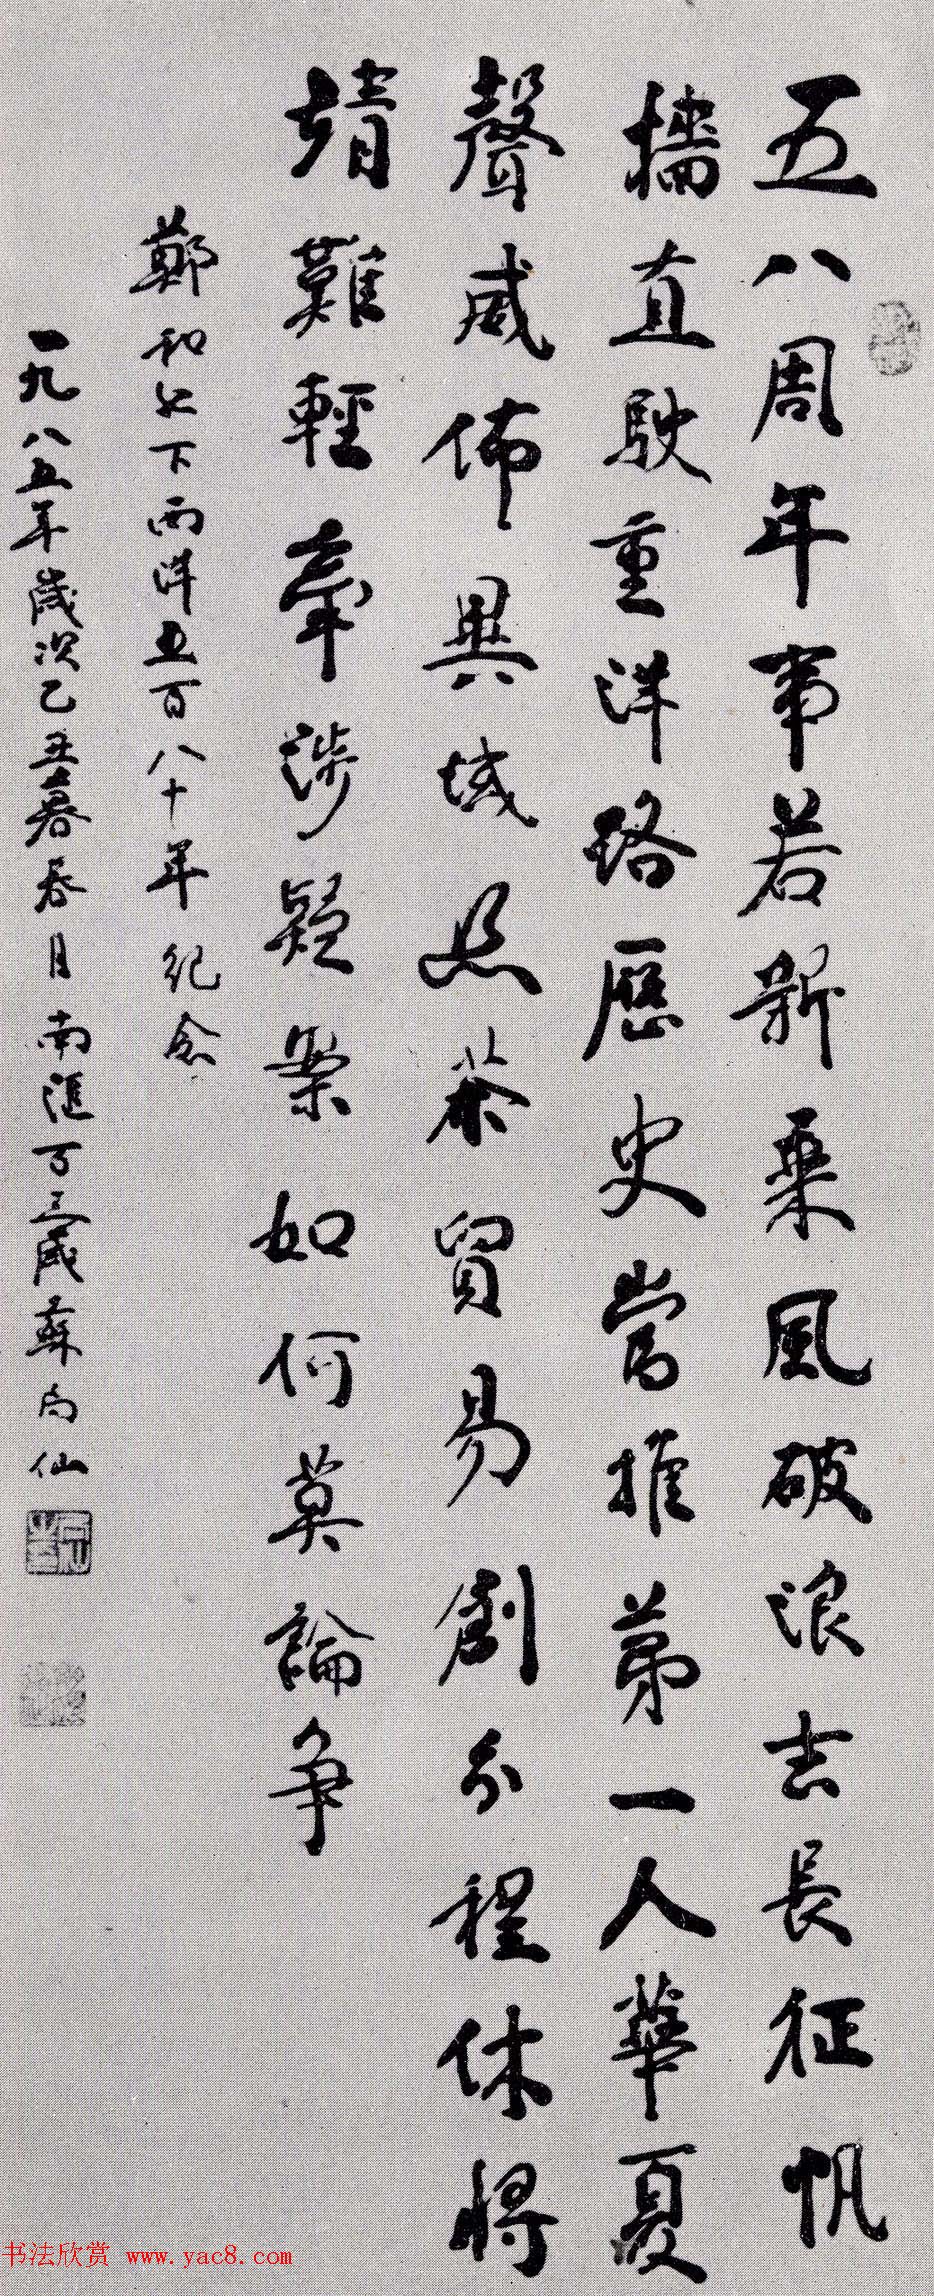 五八周年事若新乘風破浪志長征帆
檣直駛重洋路歷史當推第一人華夏
聲威佈異域絲茶貿易創分程休將
靖難輕牽涉疑案如何莫論爭
鄭和七下西洋五百八十年紀念
一九八五年歲次乙丑暮春月南匯百三歲蘇局仙
书法欣赏 www.yac8.com